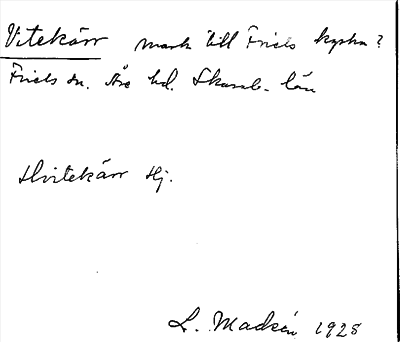 Vitekärr mark till Friels kyrka?
Friels sn. Åse hd. Skarab. län
Hvitekärr Hj.
L. Madsén 1928